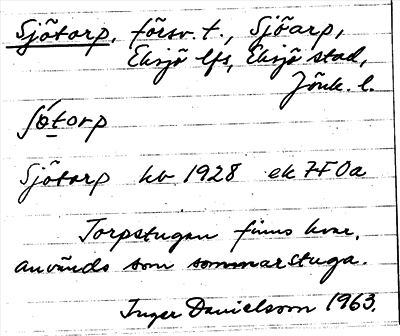 Sjötorp, försv. t., Sjöarp,
Eksjö lfs, Eksjö stad,
Jönk. l.
ʃötorp
Sjötorp hb 1928 ek 7F0a
Torpstugan finns kvar,
används som sommarstuga.
Inger Danielsson 1963.